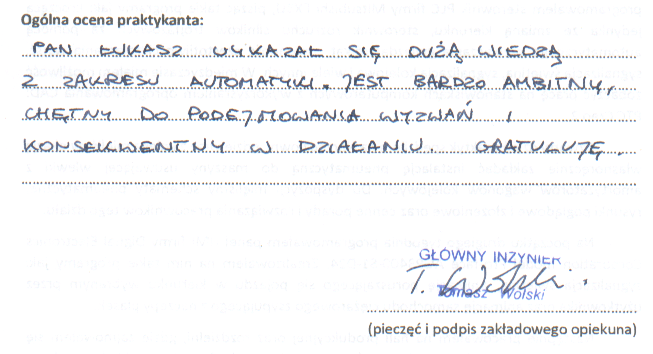 Ogólna ocena praktykanta:
PAN ŁUKASZ WYKAZAŁ SIĘ DUŻĄ WIEDZĄ
Z ZAKRESU AUTOMATYKI. JEST BARDZO AMBITNY,
CHĘTNY DO PODEJMOWANIA WYZWAŃ I
KONSEKWENTNY W DZIAŁANIU. GRATULUJĘ.
GŁÓWNY INŻYNIER
T. Wolski
Tomasz Wolski
(pieczęć i podpis zakładowego opiekuna)